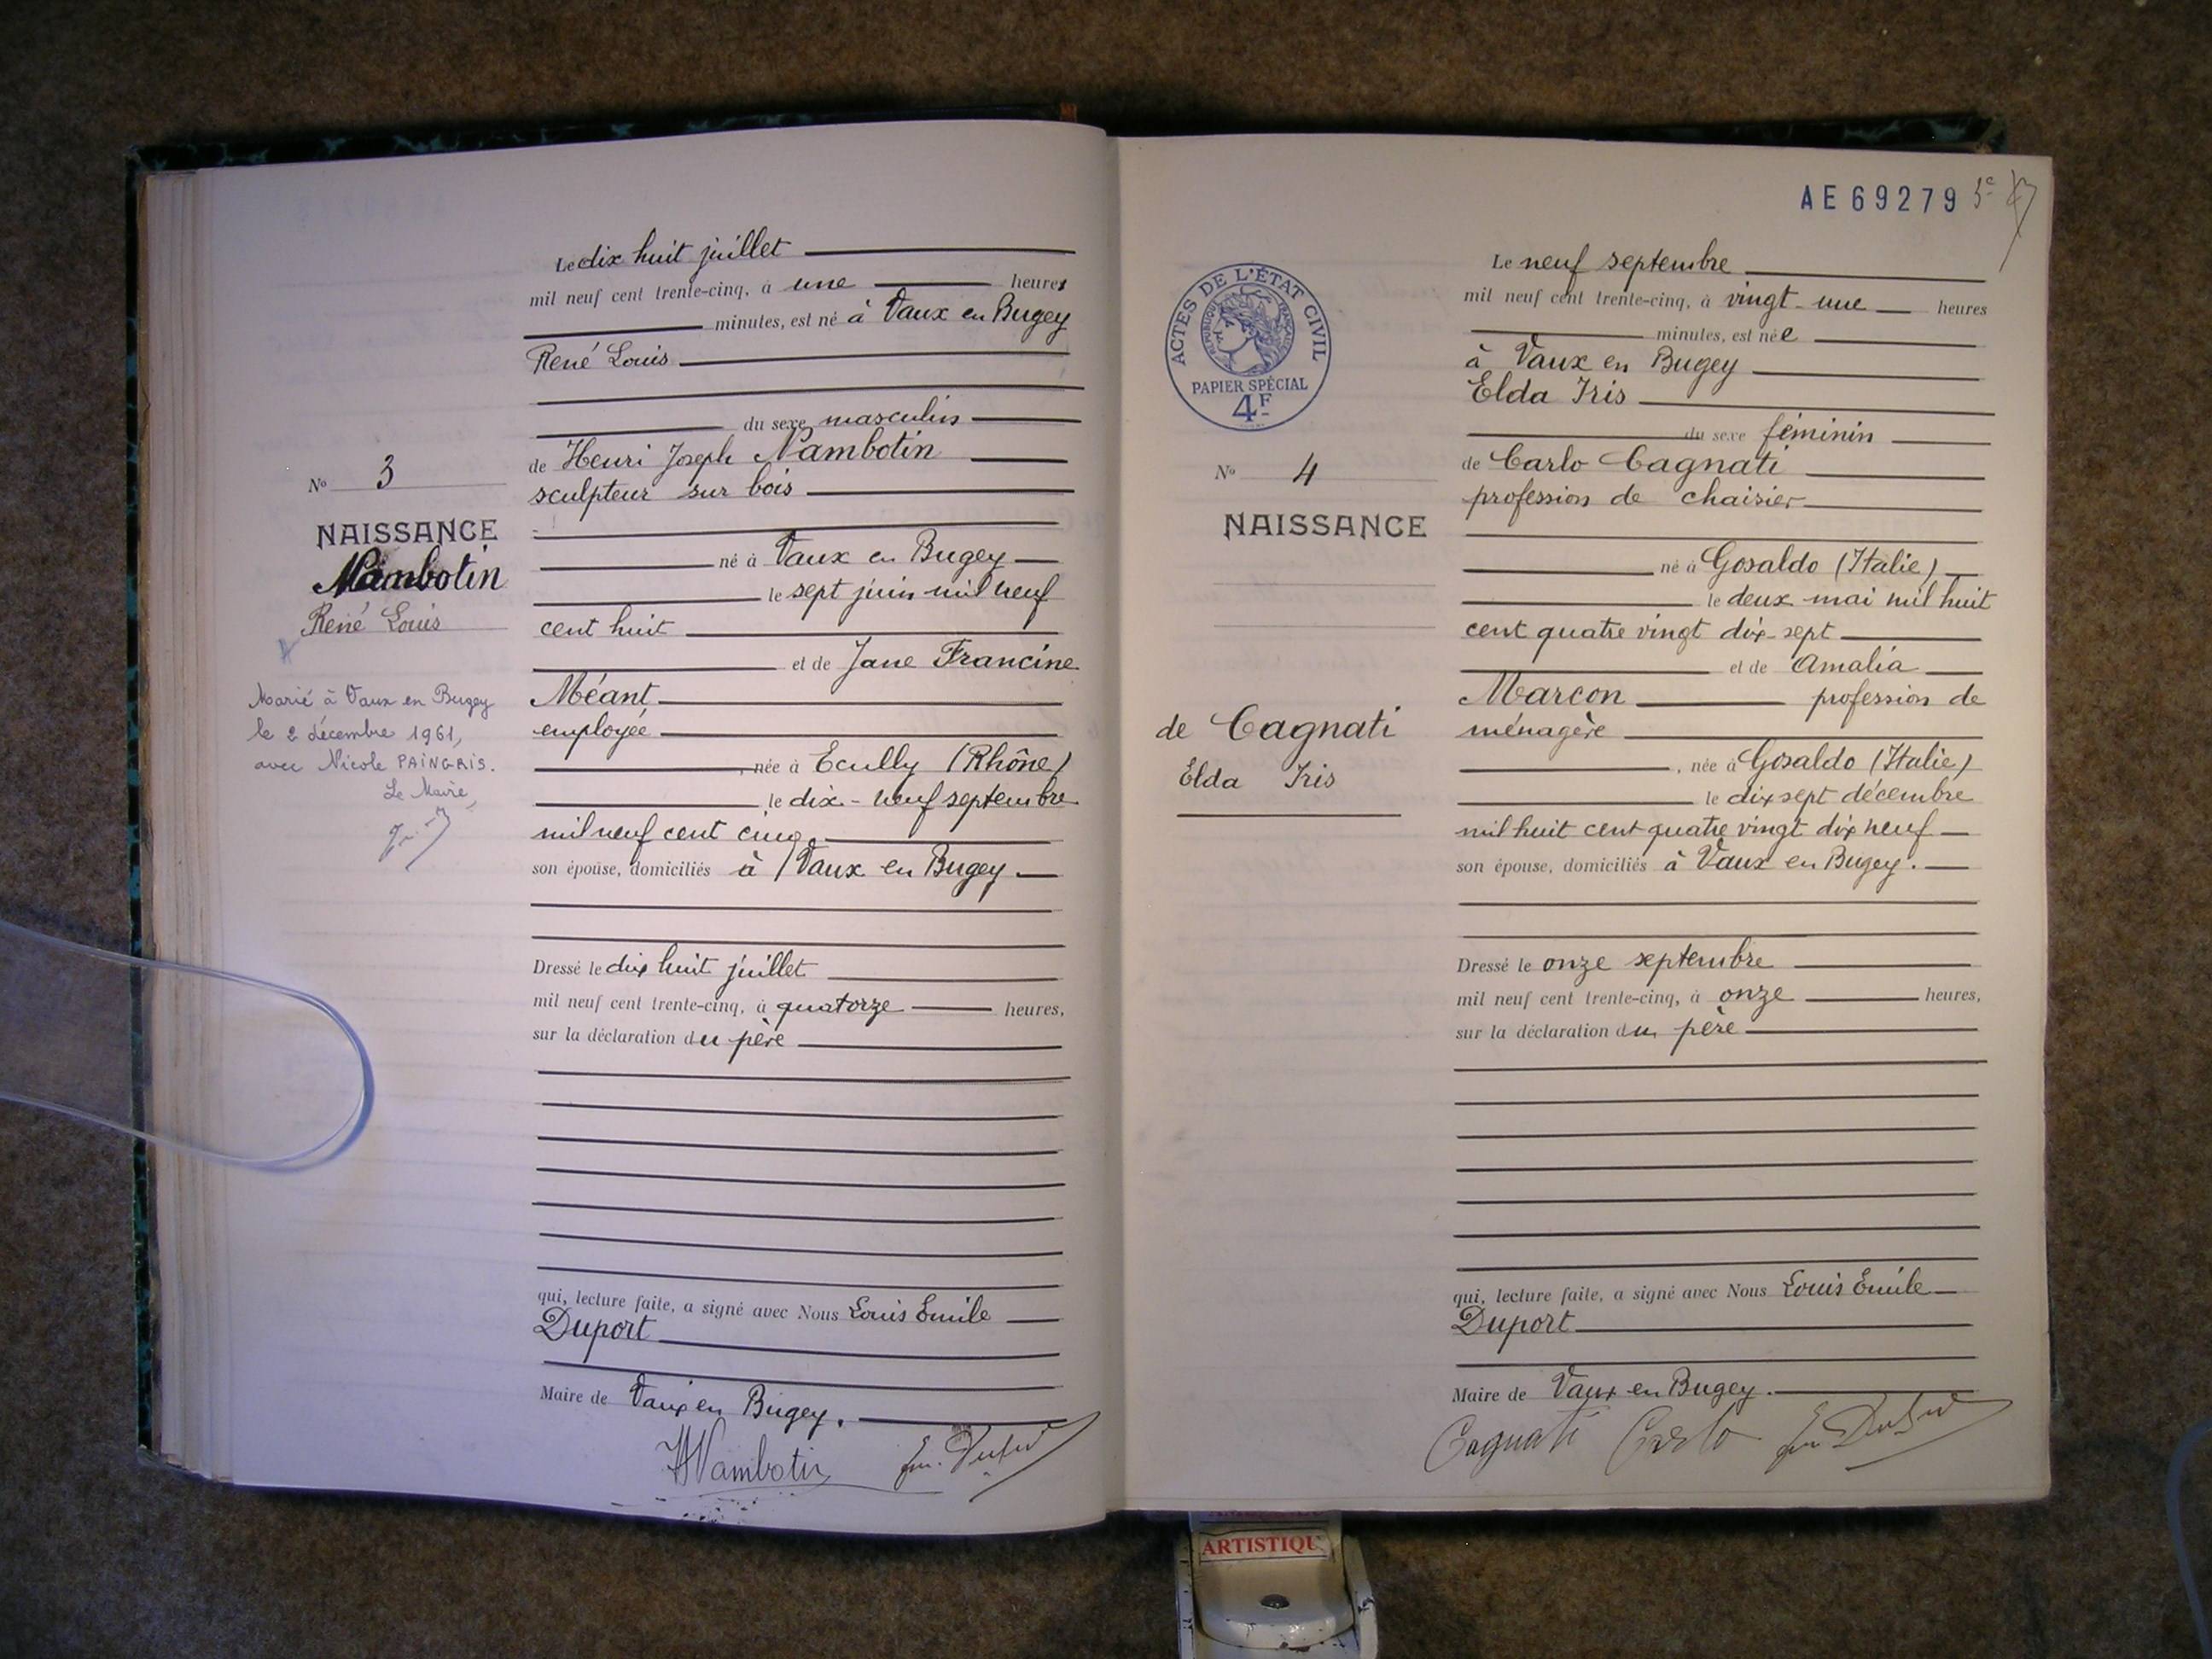 Le dix huit juillet
mil neuf cent trente-cinq, à une heures
minutes, est né à Vaux en Bugey
René Louis
du sexe masculin
de Henri Joseph Nambotin
sculpteur sur bois
né à Vaux en Bugey
le sept juin mil neuf
cent huit
et de Jane Francine
Méant
employée
, née à Ecully (Rhône)
le dix-neuf septembre
mil neuf cent cinq
son épouse, domiciliés à Vaux en Bugey.
Dressé le dix huit juillet
mil neuf cent trente-cinq, à quatorze heures,
sur la déclaration du père
qui, lecture faite, a signé avec Nous Louis Emile
Duport
Maire de Vaux en Bugey.
HNambotin
No 3
NAISSANCE
Nambotin
René Louis
Marié à Vaux en Bugey
le 2 décembre 1961,
avec Nicole PAINGRIS.
Le Maire,
AE69279
ACTES DE L'ÉTAT CIVIL
RÉPUBLIQUE FRANÇAISE
PAPIER SPÉCIAL
4F
No 4
NAISSANCE
de Cagnati
Elda Iris
Le neuf septembre
mil neuf cent trente-cinq, à vingt-une heures
minutes, est née
à Vaux en Bugey
Elda Iris
du sexe féminin
de Carlo Cagnati
profession de chaisier
né à Gosaldo (Italie)
le deux mai mil huit
cent quatre vingt dix-sept
et de Amalia
Marcon profession de
ménagère
, née à Gosaldo (Italie)
le dix sept décembre
mil huit cent quatre vingt dix neuf
son épouse, domiciliés à Vaux en Bugey.
Dressé le onze septembre
mil neuf cent trente-cinq, à onze heures,
sur la déclaration du père
qui, lecture faite, a signé avec Nous Louis Emile
Duport
Maire de Vaux en Bugey.
Cagnati Carlo
ARTISTIQU